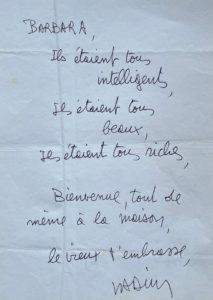 BARBARA,
Ils étaient tous
intelligents,
Ils étaient tous
beaux,
Ils étaient tous riches,
Bienvenue, tout de
même à la maison,
le vieux t'embrasse,
VADIM